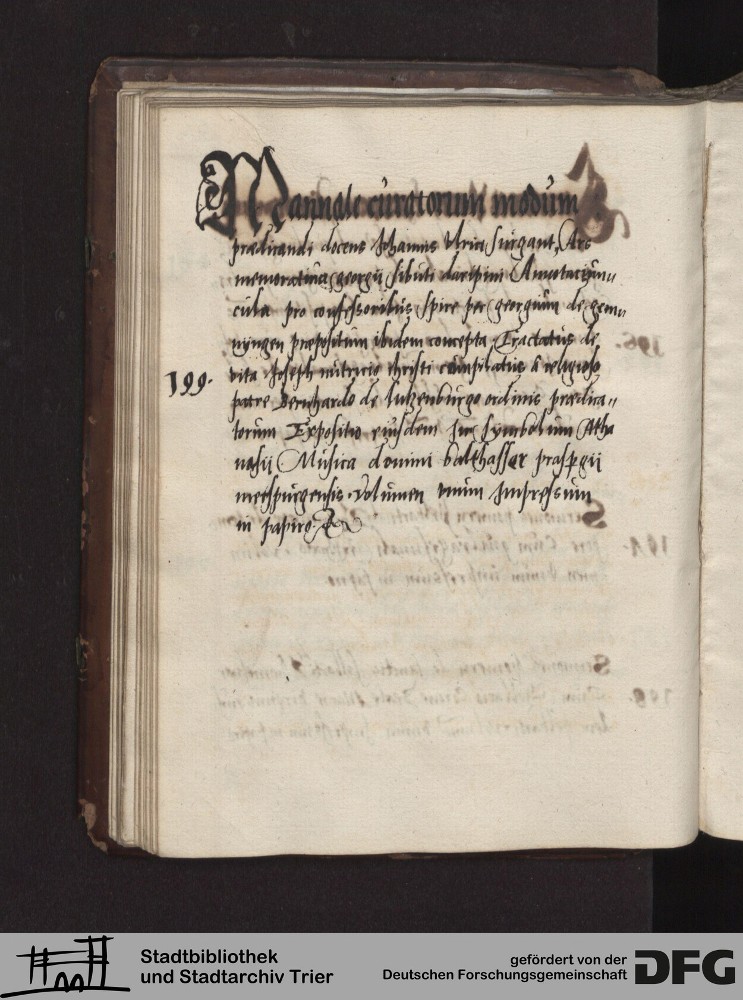 Mannale curatorum modum
prædicandi docens Johannis Ulrici Surgant, Ars
memoratiua georgii sibuti daripini Annotaciun„
cula pro confessoribus spire per georgium de gem„
nyngen præpositum ibidem concepta, Tractatus de
vita Joseph nutricis christi cumpilatus a religioso
199.
patre Bernhardo de lutzenburgo ordinis prædica„
torum Expositio eiusdem sup symbolum Atha
nasii Musica domini balthasser praspergii
merspurgensis. Volumen unum Impressum
in papiro
Stadtbibliothek
und Stadtarchiv Trier
gefördert von der
Deutschen Forschungsgemeinschaft
DFG